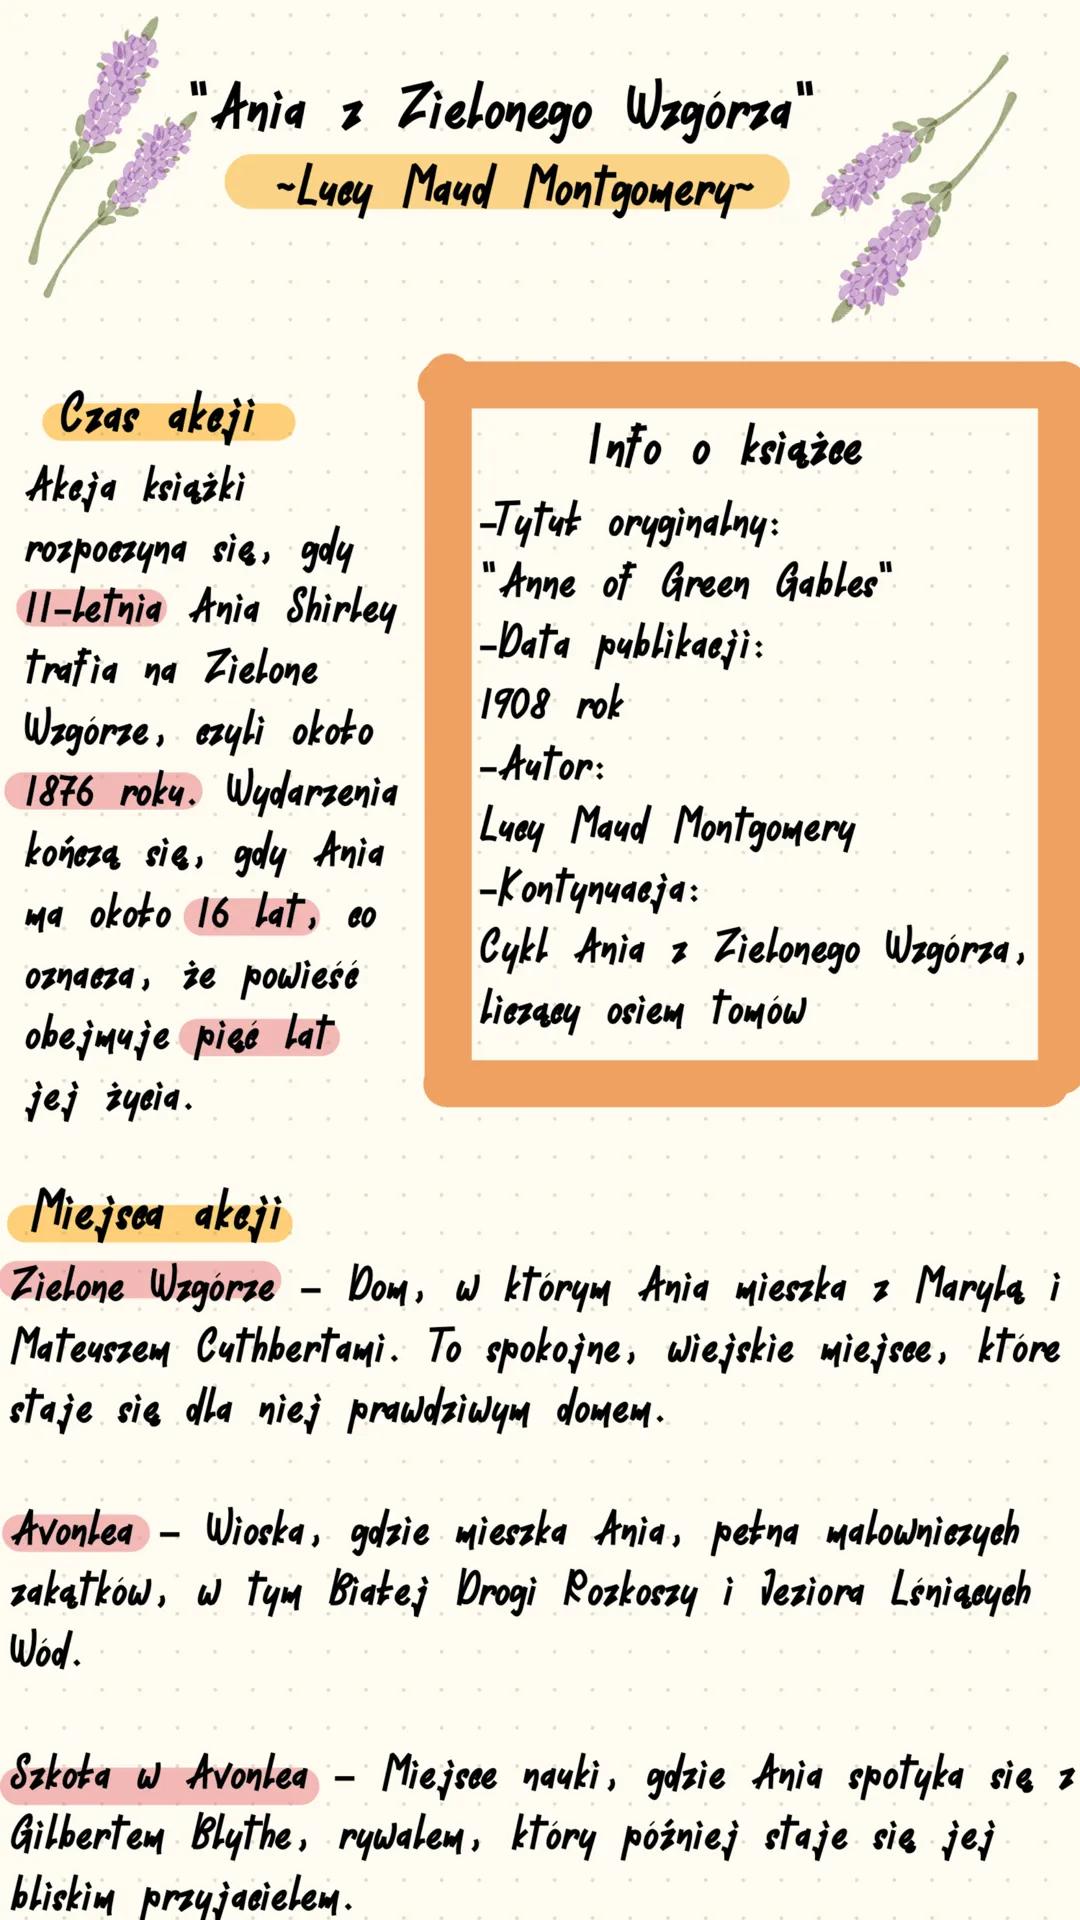 "Ania z Zielonego Wzgórza"
~Lucy Maud Montgomery~
Czas akcji
Akcja książki
rozpoczyna się, gdy
11-letnia Ania Shirley
trafia na Zielone
Wzgórze, czyli około
1876 roku. Wydarzenia
kończą się, gdy Ania
ma około 16 lat, co
oznacza, że powieść
obejmuje pięć lat
jej życia.
Info o książce
-Tytuł oryginalny:
"Anne of Green Gables"
-Data publikacji:
1908 rok
-Autor:
Lucy Maud Montgomery
-Kontynuacja:
Cykl Ania z Zielonego Wzgórza,
liczący osiem tomów
Miejsca akcji
Zielone Wzgórze - Dom, w którym Ania mieszka z Marylą i
Mateuszem Cuthbertami. To spokojne, wiejskie miejsce, które
staje się dla niej prawdziwym domem.
Avonlea - Wioska, gdzie mieszka Ania, pełna malowniczych
zakątków, w tym Białej Drogi Rozkoszy i Jeziora Lśniących
Wód.
Szkoła w Avonlea - Miejsce nauki, gdzie Ania spotyka się z
Gilbertem Blythe, rywalem, który później staje się jej
bliskim przyjacielem.